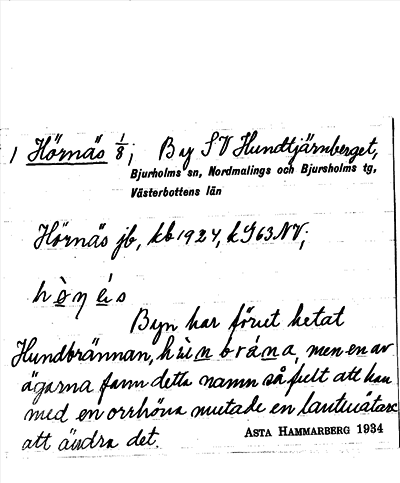 1 Hörnäs 1/8; By SV Hundtjärnberget,
Bjurholms sn, Nordmalings och Bjursholms tg,
Västerbottens län
Hörnäs jb, kb 1924, k 963 NV;
Byn har förut hetat
Hundbrännan, men en av
ägarna fann detta namn så fult att han
med en orrhöna mutade en lantmätare
att ändra det.
ASTA HAMMARBERG 1934